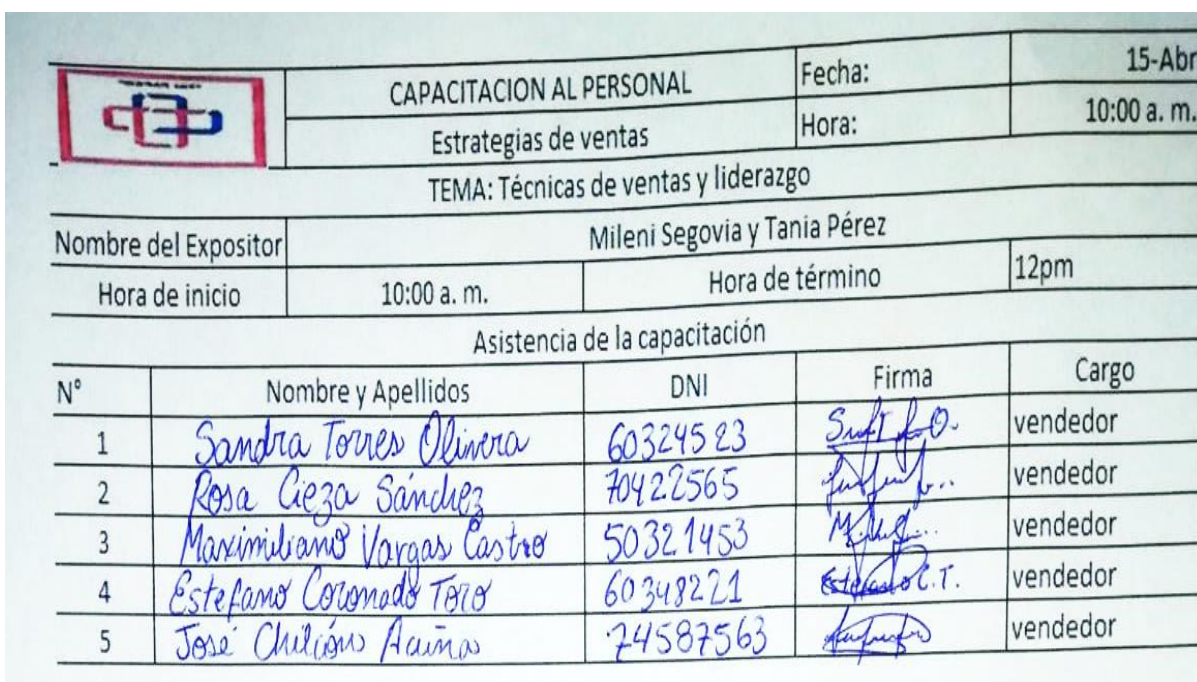 CAPACITACION AL PERSONAL Fecha: 15-Abr
Estrategias de ventas Hora: 10:00 a. m.
TEMA: Técnicas de ventas y liderazgo
Nombre del Expositor Mileni Segovia y Tania Pérez
Hora de inicio 10:00 a. m. Hora de término 12pm
Asistencia de la capacitación
N° Nombre y Apellidos DNI Firma Cargo
1 Sandra Torres Olivera 60324523 vendedor
2 Rosa Cieza Sánchez 70422565 vendedor
3 Maximiliano Vargas Castro 50321453 vendedor
4 Estefano Coronado Toro 60348221 Estefano C.T. vendedor
5 José Chilcón 74587563 vendedor